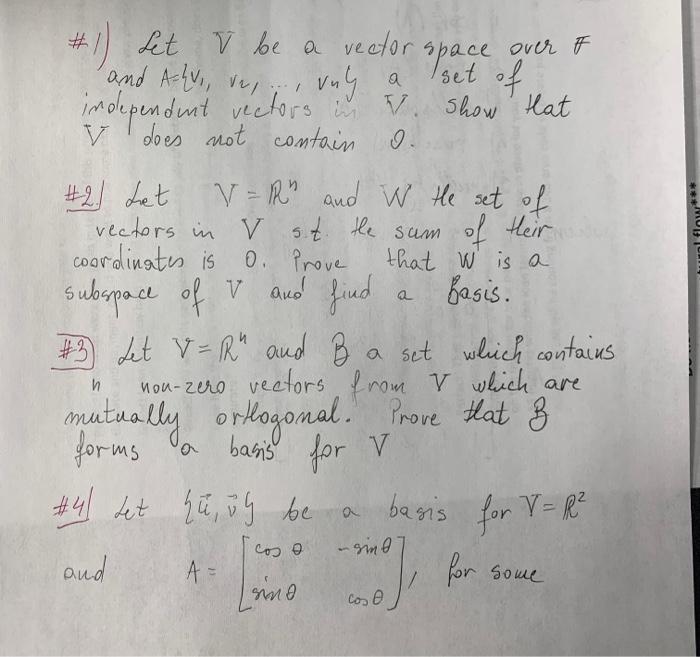 #1) Let V be a vector space over F
and A={v₁, v₂, ..., vₙ} a set of
independent vectors in V. Show that
V does not contain 0.
#2) Let V = ℝⁿ and W the set of
vectors in V s.t. the sum of their
coordinates is 0. Prove that W is a
subspace of V and find a basis.
#3 Let V = ℝⁿ and B a set which contains
n non-zero vectors from V which are
mutually orthogonal. Prove that B
forms a basis for V
#4) Let {u⃗, v⃗} be a basis for V = ℝ²
and A = [cos θ -sin θ
sin θ cos θ], for some